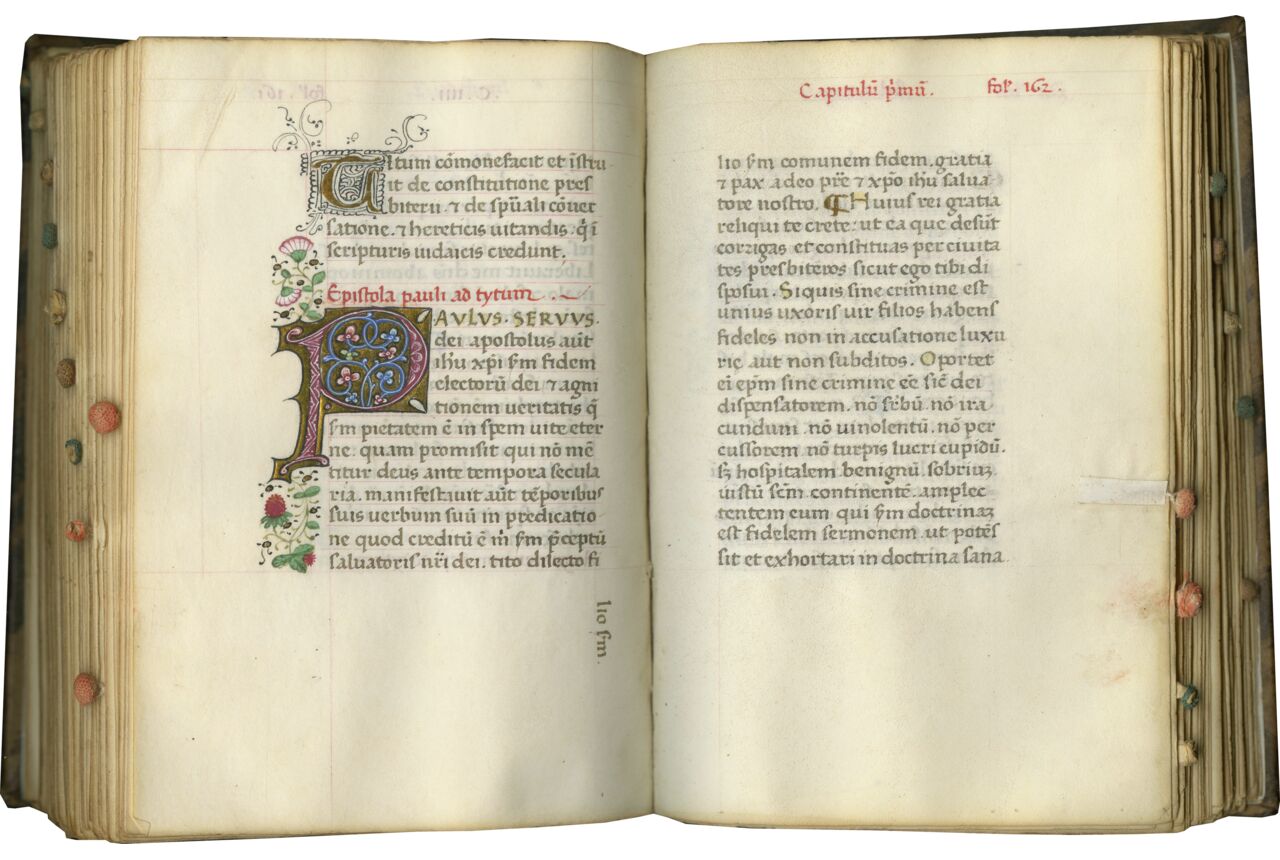 Titum cōmonefacit et īstru
it de constitutione pres
biterii. ⁊ de sp̄uali cōuer
satione. ⁊ hereticis uitandis. qͥ ī
scripturis iudaicis credunt.
Epistola pauli ad tytum.
PAVLVS. SERVVS.
dei apostolus aūt
ihū xp̄i fm̄ fidem
electorū dei. ⁊ agni
tionem ueritatis q̄
fm̄ pietatem ē in spem uite eter
ne. quam promisit qui nō mē
titur deus ante tempora secula
ria. manifestauit aūt tēporibus
suis uerbum suū in predicatio
ne quod creditū ē m̄ fm̄ p̄ceptū
saluatoris nr̄i dei. tito dilecto fi
lio fm̄.
Capitulū p̄mū. fol. 162.
lio fm̄ comunem fidem. gratia
⁊ pax a deo pr̄e ⁊ xp̄o ihū salua
tore nostro. Huius rei gratia
reliqui te crete: ut ea que desūt
corrigas et constituas per ciuita
tes presbiteros sicut ego tibi di
sposui. Siquis sine crimine est
unius uxoris uir filios habens
fideles non in accusatione luxu
rie aut non subditos. Oportet
eī ep̄m sine crimine eē sic̄ dei
dispensatorem. nō sr̄bū. nō ira
cundum. nō uinolentū. nō per
cussorem. nō turpis lucri cupidū.
sꝫ hospitalem. benignū. sobriuꝫ.
iustū sc̄m. continentē. amplec
tentem eum qui fm̄ doctrinaꝫ
est fidelem sermonem. ut potēs
sit et exhortari in doctrina sana.